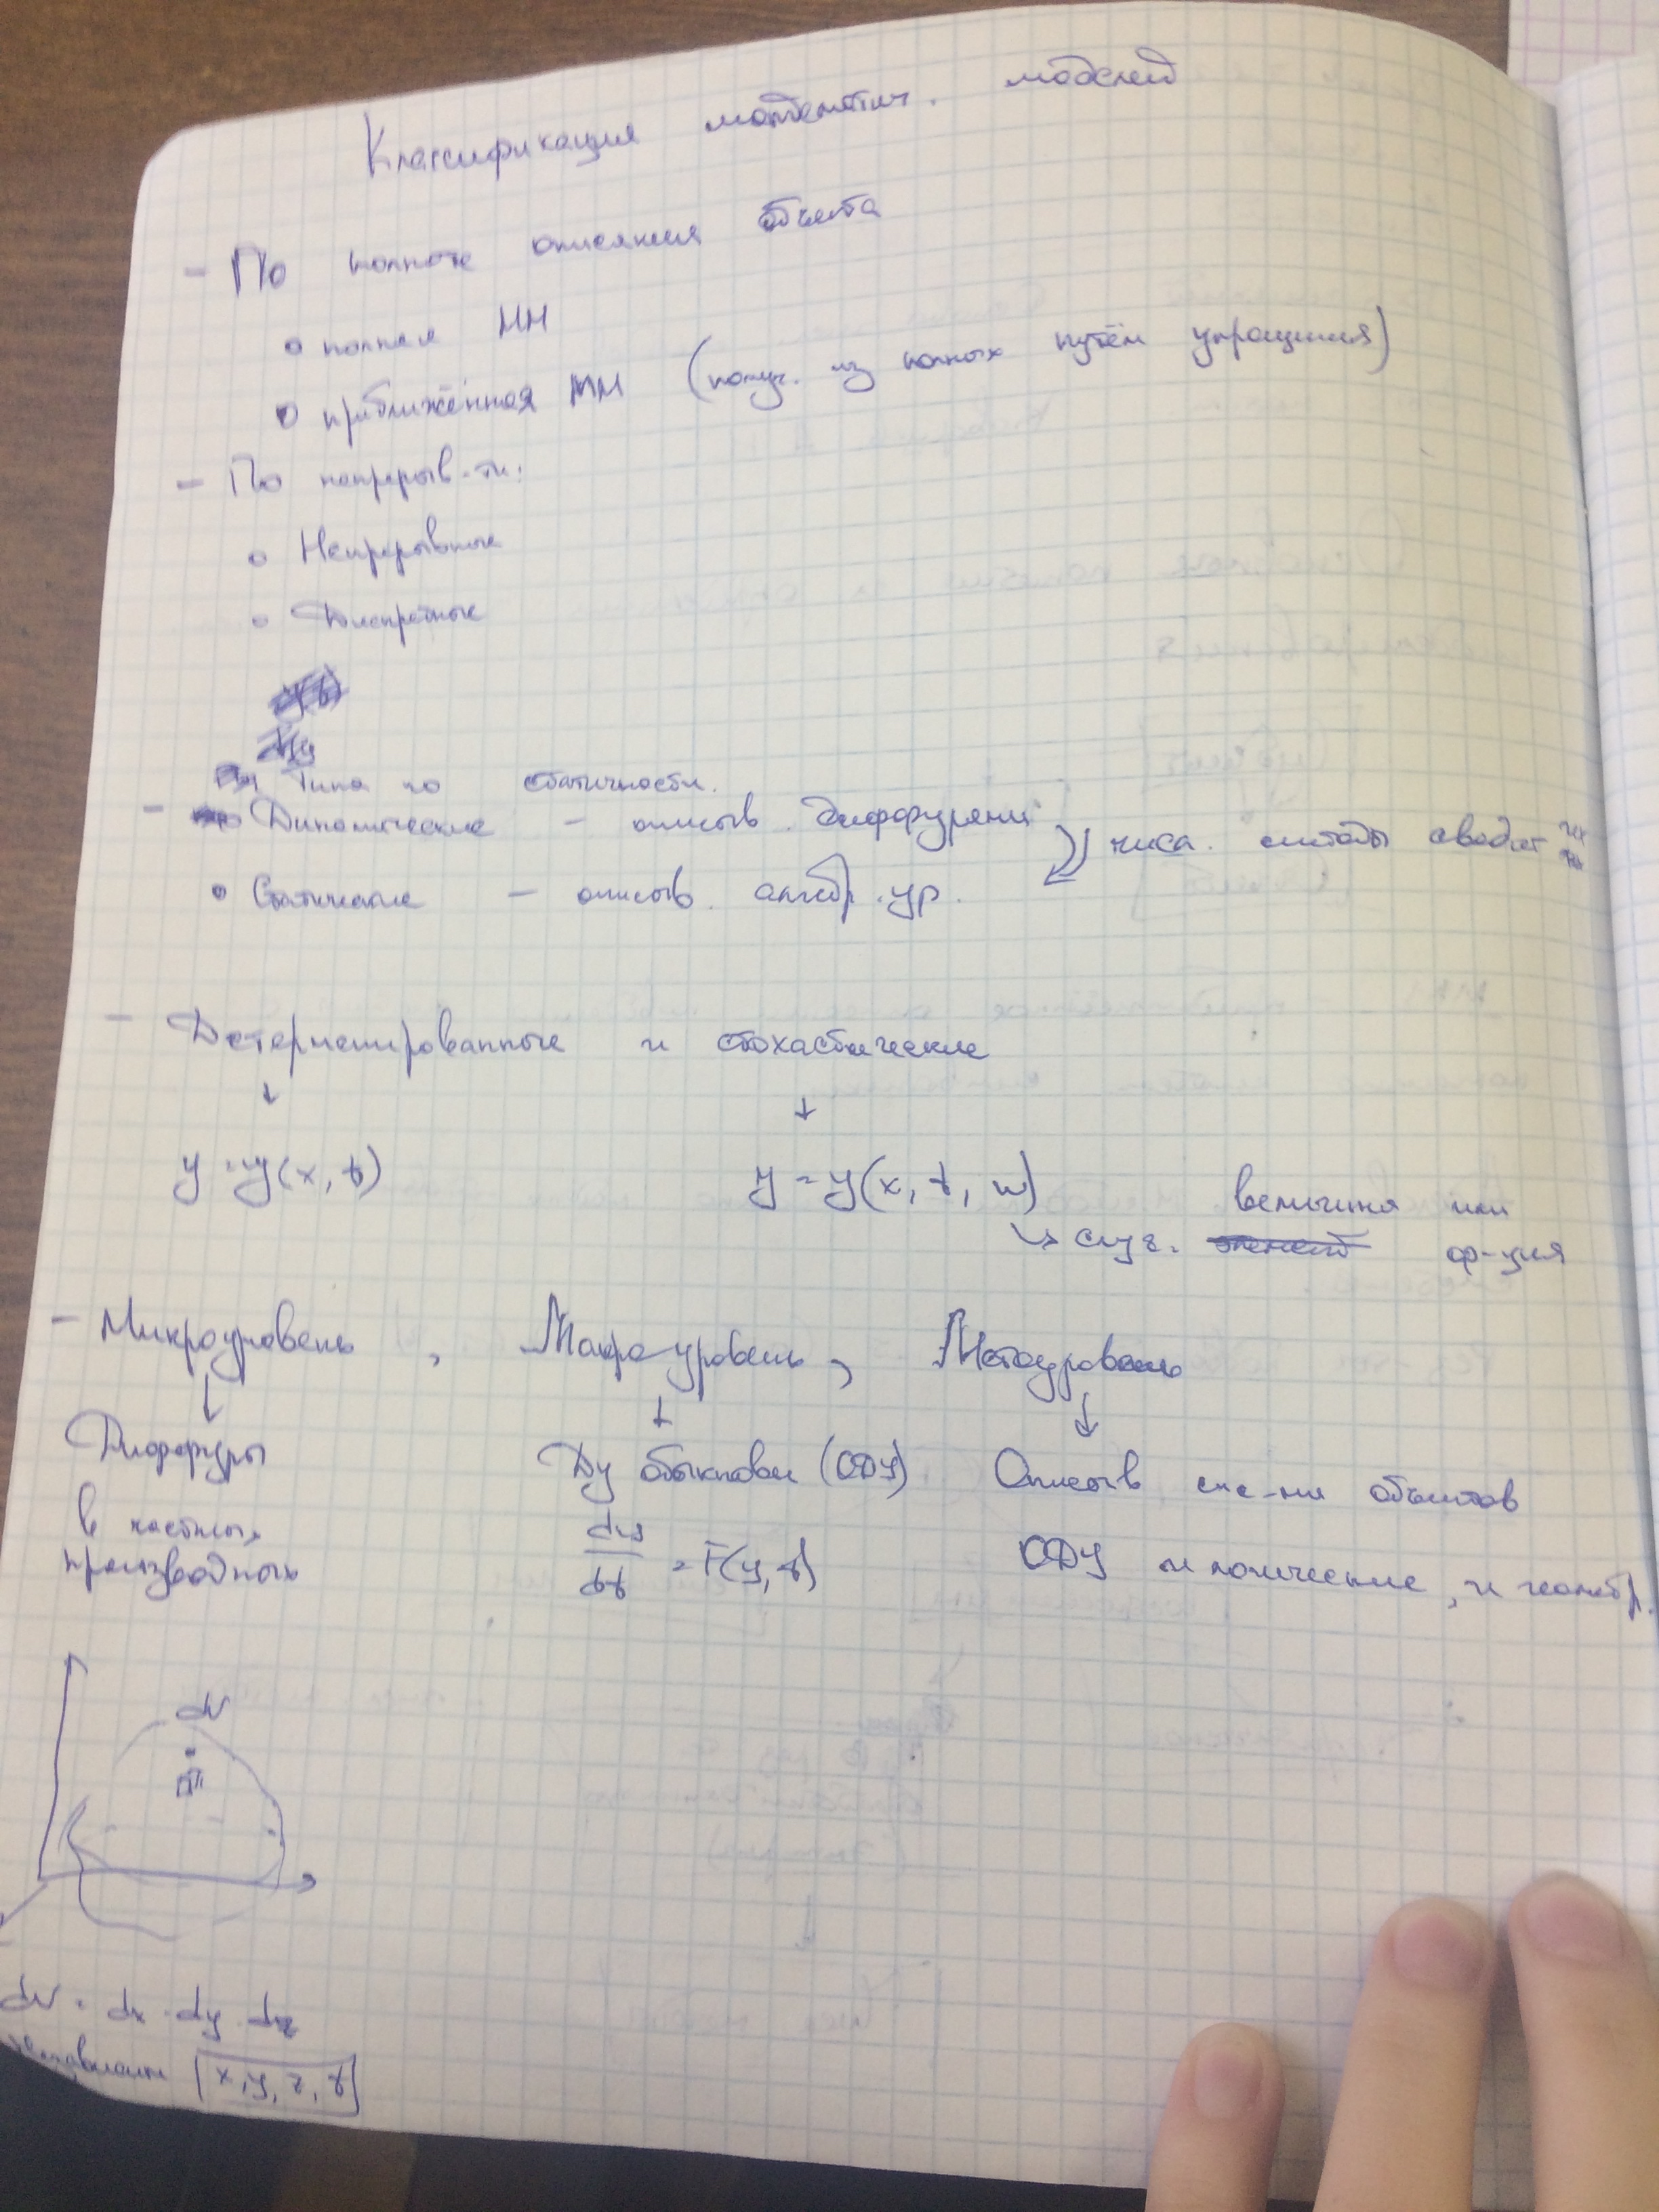 Классификация математич. моделей
- По полноте описания объекта
полная ММ
приближённая ММ (получ. из полных путём упрощения)
- По непрерыв-ти:
Непрерывные
Дискретные
Типа по статичности.
- Динамические - описыв. диффурами
числ. методы сводят их
Статические - описыв. алгебр. ур.
- Детерменированные и стохастические
↓ ↓
y = y(x, t) y = y(x, t, w)
↳ случ. величина или ф-ция
- Микроуровень, Макроуровень, Метауровень
↓ ↓ ↓
Диффуры в частных производных
Ду обыкновен (ОДУ)
dy/dt = F(y, t)
Описыв. сис-мы объектов
ОДУ и логические, и
dV
dV = dx · dy · dz
x, y, z, t